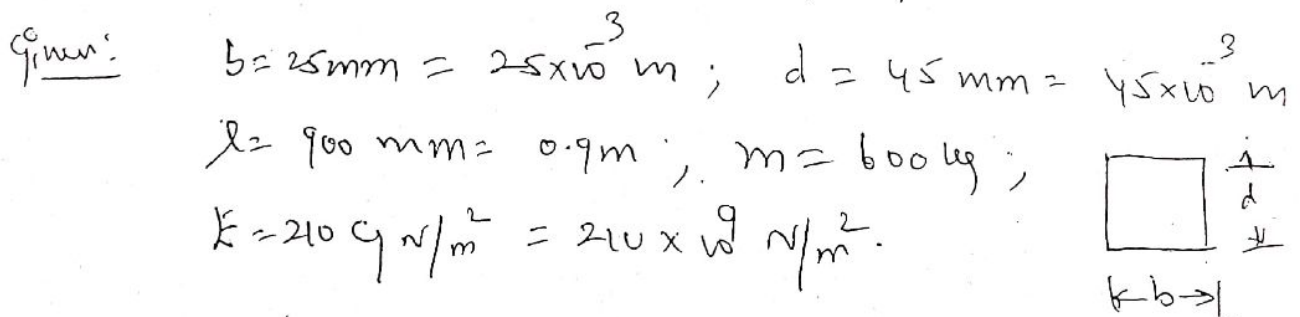 Given: b = 25mm = 25×10⁻³ m ; d = 45 mm = 45×10⁻³ m
l = 900 mm = 0.9m ; m = 600 kg ;
E = 210 G N/m² = 210 × 10⁹ N/m².
d
b